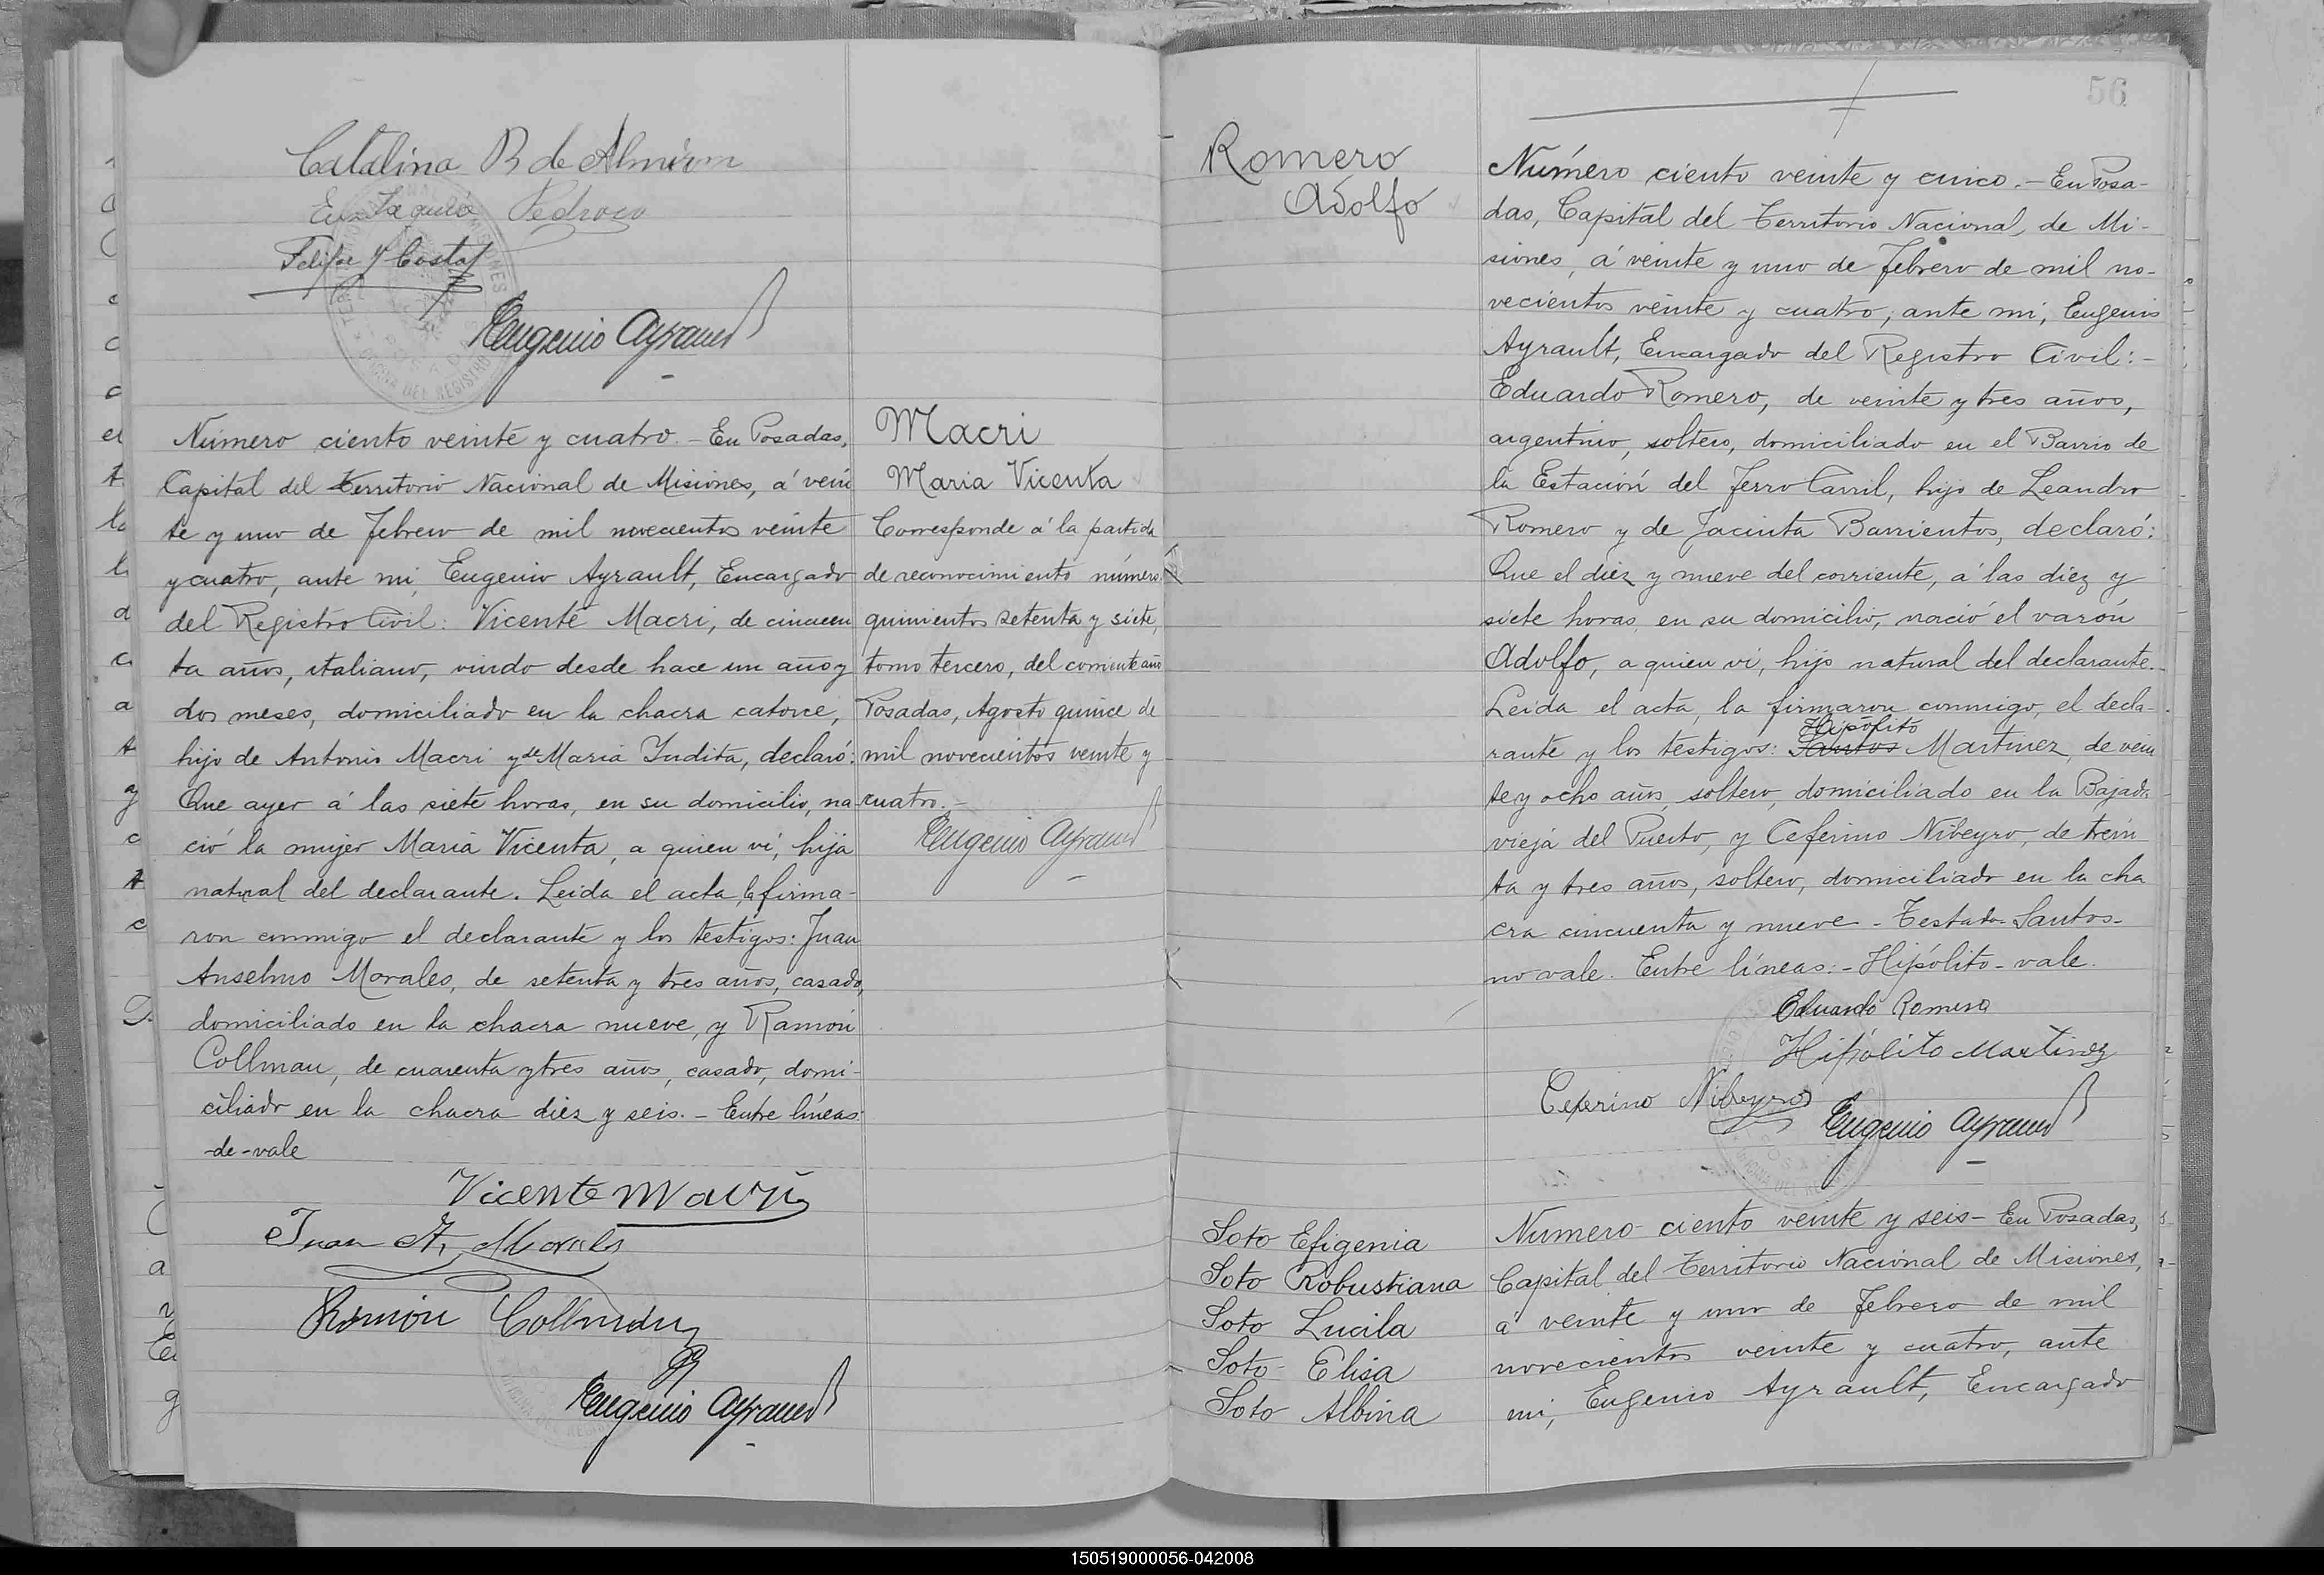 Catalina B de Almiron
Eustaquia Pedrozo
Felipe Y Costa
Eugenio Ayrault
Número ciento veinte y cuatro.- En Posadas,
Capital del Territorio Nacional de Misiones, á vein
te y uno de febrero de mil novecientos veinte
y cuatro, ante mi, Eugenio Ayrault, Encargado
del Registro Civil: Vicente Macri, de cincuen
ta años, italiano, viudo desde hace un año y
dos meses, domiciliado en la chacra catorce,
hijo de Antonio Macri y de Maria Indita, declaró:
Que ayer á las siete horas, en su domicilio, na-
ció la mujer Maria Vicenta, a quien ví, hija
natural del declarante. Leida el acta, la firma-
ron conmigo el declarante y los testigos: Juan
Anselmo Morales, de setenta y tres años, casado,
domiciliado en la chacra nueve, y Ramón
Collman, de cuarenta y tres años, casado, domi-
ciliado en la chacra diez y seis.- Entre líneas:
-de-vale
Vicente Macri
Juan A. Morales
Ramón Collman
Eugenio Ayrault
Macri
Maria Vicenta
Corresponde á la partida
de reconocimiento número
quinientos setenta y siete,
tomo tercero, del corriente año
Posadas, Agosto quince de
mil novecientos veinte y
cuatro.-
Eugenio Ayrault
56
Romero
Adolfo
Número ciento veinte y cinco.- En Posa-
das, Capital del Territorio Nacional de Mi-
siones, á veinte y uno de febrero de mil no-
vecientos veinte y cuatro, ante mi, Eugenio
Ayrault, Encargado del Registro Civil:-
Eduardo Romero, de veinte y tres años,
argentino, soltero, domiciliado en el Barrio de
la Estación del Ferro Carril, hijo de Leandro
Romero y de Jacinta Barrientos, declaró:
Que el diez y nueve del corriente, á las diez y
siete horas, en su domicilio, nació el varón
Adolfo, a quien ví, hijo natural del declarante.
Leida el acta, la firmaron conmigo, el decla-
Hipólito
rante y los testigos: Santos Martinez, de vein
te y ocho años, soltero, domiciliado en la Bajada
vieja del Puerto, y Ceferino Nibeyro, de trein
ta y tres años, soltero, domiciliado en la cha
cra cincuenta y nueve - Testado - Santos-
no vale. Entre líneas:- Hipólito - vale.
Eduardo Romero
Hipólito Martinez
Ceferino Nibeyro
Eugenio Ayrault
Soto Efigenia
Soto Robustiana
Soto Lucila
Soto Elisa
Soto Albina
Numero ciento veinte y seis- En Posadas,
Capital del Territorio Nacional de Misiones,
á veinte y uno de febrero de mil
novecientos veinte y cuatro, ante
mi, Eugenio Ayrault, Encargado
150519000056-042008